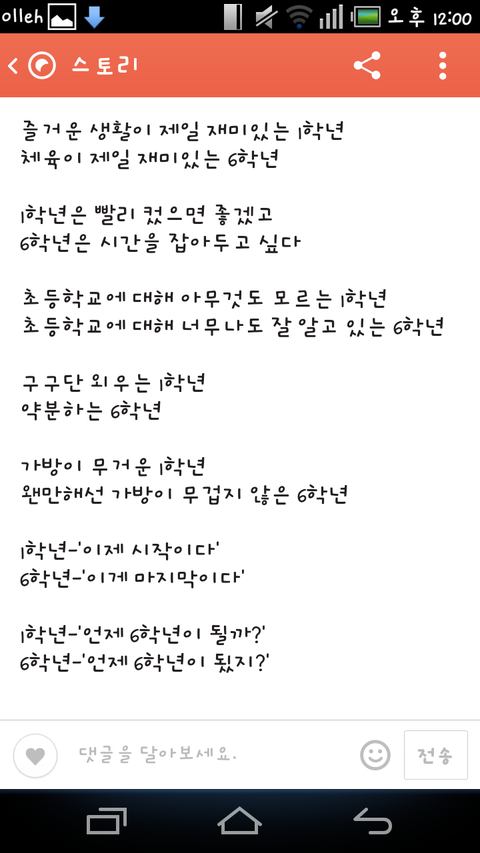 olleh 오후 12:00
스토리
즐거운 생활이 제일 재미있는 1학년
체육이 제일 재미있는 6학년
1학년은 빨리 컸으면 좋겠고
6학년은 시간을 잡아두고 싶다
초등학교에 대해 아무것도 모르는 1학년
초등학교에 대해 너무나도 잘 알고 있는 6학년
구구단 외우는 1학년
약분하는 6학년
가방이 무거운 1학년
왠만해선 가방이 무겁지 않은 6학년
1학년-'이제 시작이다'
6학년-'이게 마지막이다'
1학년-'언제 6학년이 될까?'
6학년-'언제 6학년이 됬지?'
댓글을 달아보세요. 전송